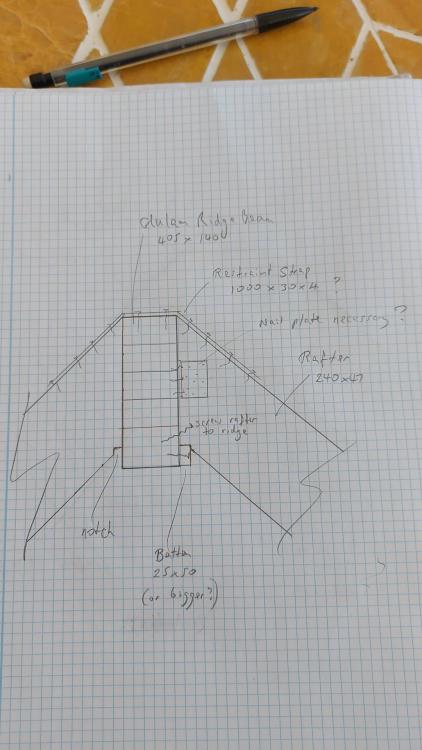 Glulam Ridge beam
405 x 140
Restraint Strap
1000 x 30 x 4 ?
Nail plate necessary?
Rafter
240x47
screw rafter
to ridge
notch
Batten
25x50
(or bigger?)